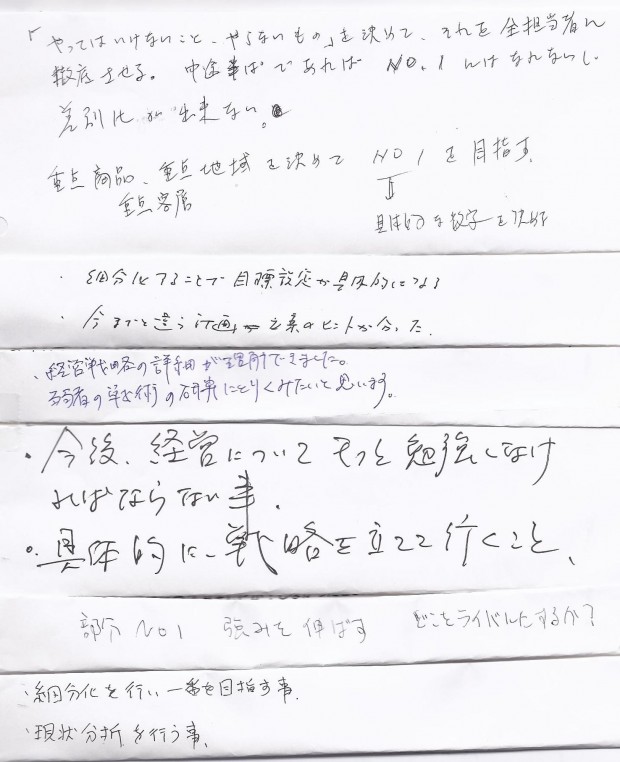 「やってはいけないこと、やらないもの」を決めて、それを全担当者に
徹底させる。中途半ぱであれば NO.1にはなれないし
差別化が出来ない。
重点商品、重点地域を決めて NO1を目指す。
重点客層
具体的な数字を決める
・細分化することで目標設定が具体的になる
・今までと違う計画立案のヒントが分った。
・経営戦略の詳細が理解できました。
弱者の戦術の研究にとりくみたいと思います。
・今後、経営についてもっと勉強しなけ
ればならない事。
・具体的に戦略を立てて行くこと、
部分NO1 強みを伸ばす どこをライバルにするか？
・細分化を行い一番を目指す事。
・現状分析を行う事。